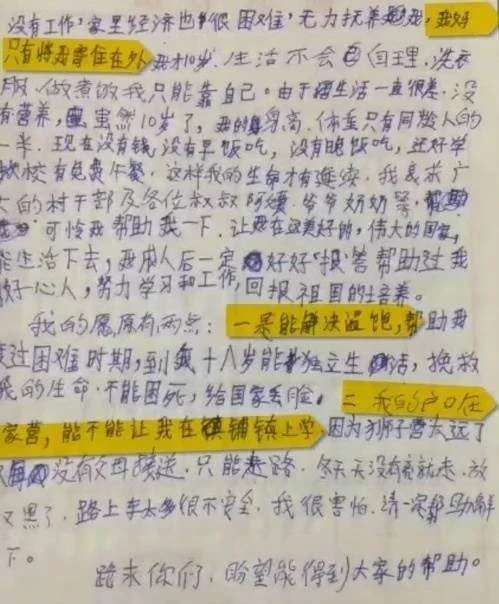 没有工作，家里经济也很困难，无力抚养我，我妈
只有将我寄住在外，我才10岁，生活不会自理，洗衣
服，做煮饭我只能靠自己。由于生活一直很差，没
有营养，虽然10岁了，我的身高、体重只有同龄人的
一半。现在没有钱，没有早饭吃，没有晚饭吃，还好学
校有免费午餐，这样我的生命才有延续。我哀求广
大的村干部及各位叔叔阿姨、爷爷奶奶等，
可怜我帮助我一下，让我在这美好的，伟大的国家，
能生活下去，我成人后一定好好报答帮助过我
的好心人，努力学习和工作，回报祖国的培养。
我的愿原有两点：一是能解决温饱，帮助我
度过困难时期，到我十八岁能独立生活，挽救
我的生命，不能困死，给国家丢脸。二我的户口在
家营，能不能让我在镇铺镇上学，因为狮子营太远了
没有父母接送，只能走路，冬天天没有亮就走，放
又黑了，路上车太多很不安全，我很害怕，请一定帮助解
下。
跪求你们，盼望能得到大家的帮助。